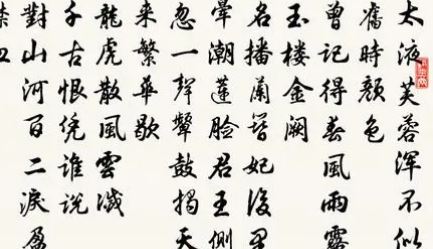 太液芙蓉渾不似
舊時顏色
曾記得春風雨露
玉楼金闕
名播蘭簪妃後里
暈潮蓮臉君王側
忽一聲鼙鼓揭天
来繁華歇
龍虎散風雲滅
千古恨凭誰說
對山河百二淚盈